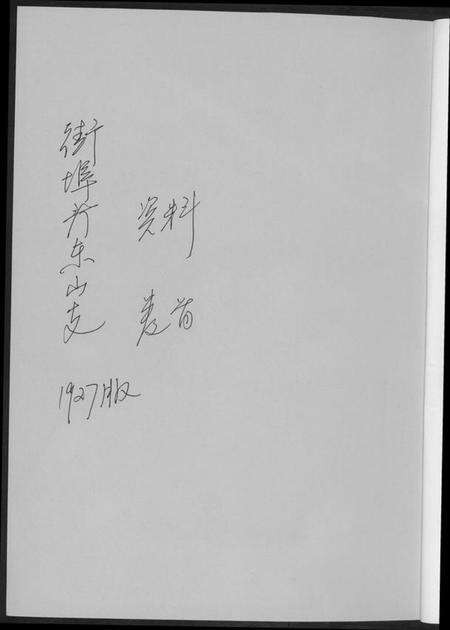 街埠东山支
资料
卷首
1927版